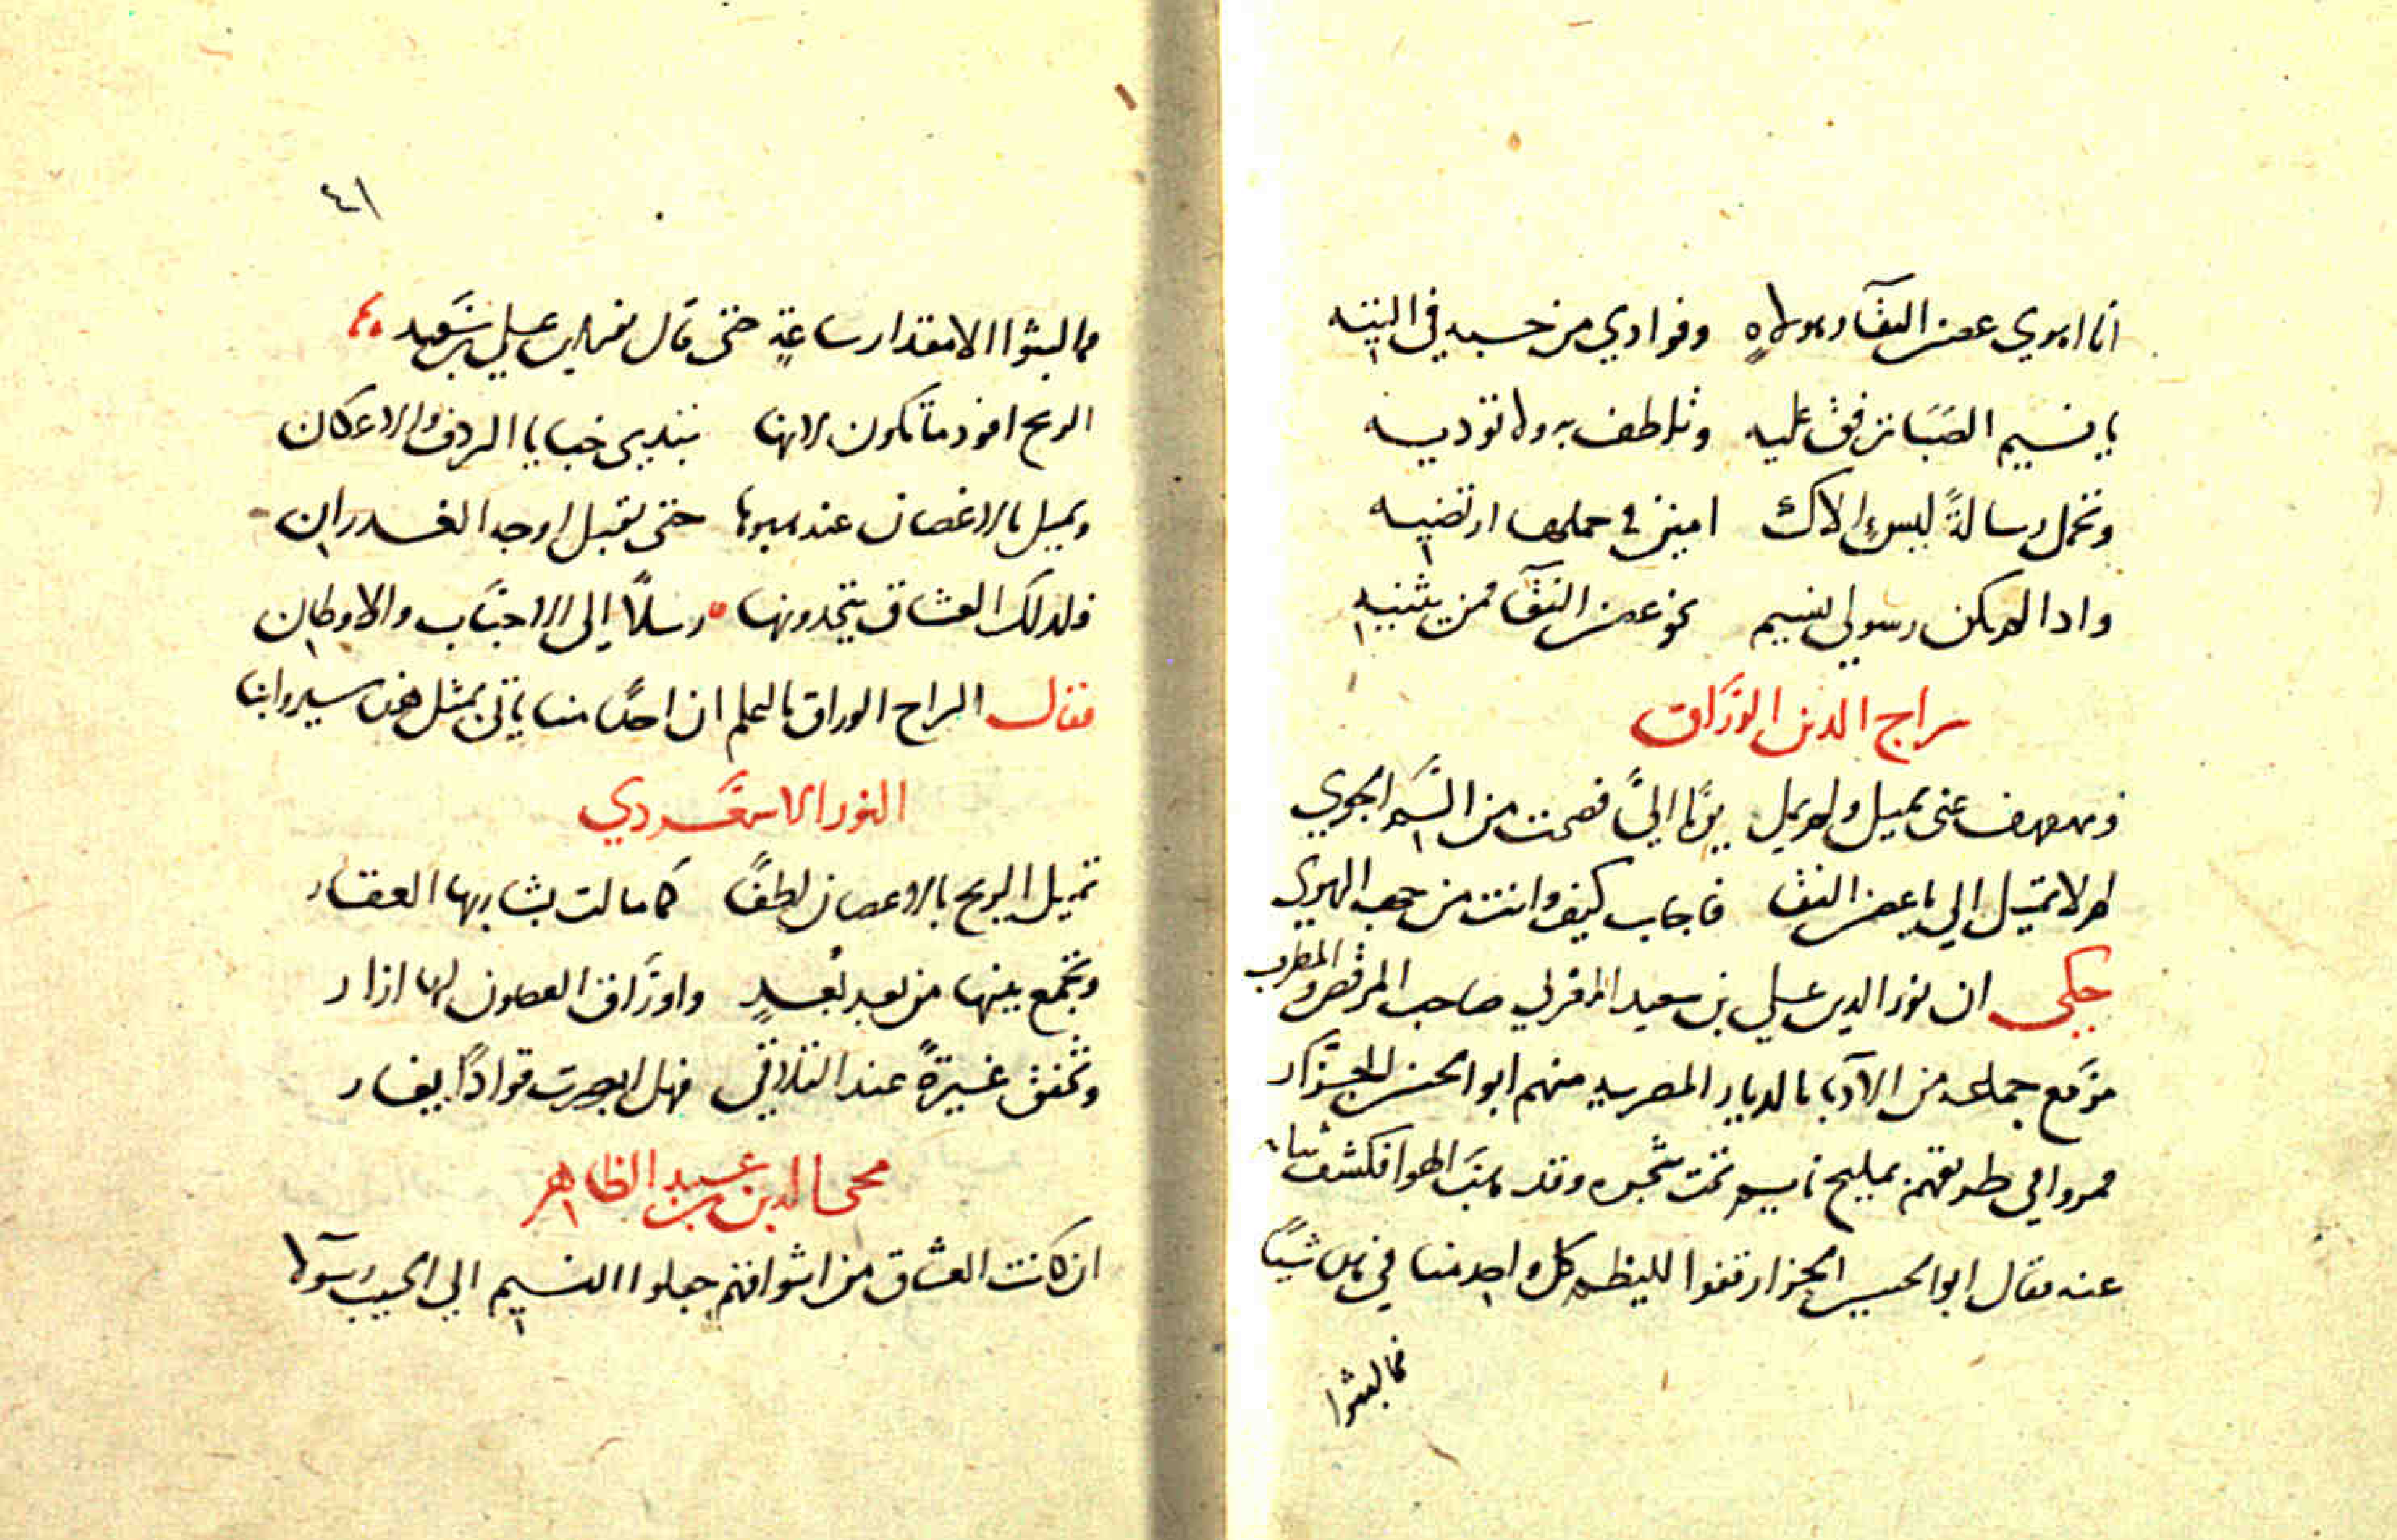 انا اهوي غصن النقا وهو لاهٍ وفوادي من حسبه في التيه
يا نسيم الصَبَا ترفق عليه وتلطف به ولا توديه
وتحمل رسالةً ليس الاك امين في حملها ارتضيه
واذا لم يكن رسولي نسيم نحو غصن النقا فمن يثنيه
سراج الدين الورَّاق
ومهفهف عني يميل ولم يمل يومًا اليَّ فصحت من الم الجوي
لم لا تميل الي يا غصن النقا فاجاب كيف وانت من جهه الهوي
حكى ان نور الدين علي بن سعيد المغربي صاحب المرقص والمطرب
مرَّ مع جماعه من الادبا بالديار المصريه منهم ابو الحسن الجزَّار
فمروا في طريقهم بمليح نايم تحت شجره وقد هبَّ الهوا فكشف ثيابه
عنه فقال ابو الحسين الجزار قفوا لينظم كل واحد منا في هذا شيًا
فما لبثوا
٤١
فما لبثوا الا مقدار ساعةٍ حتى قال نور الدين علي بن سَعيد
الريح اقود ما تكون لانها تبدي خبايا الردف والاعكان
وتميل بالاغصان عند هبوبها حتى تقبل اوجه الغدران
فلذلك العشاق يتخذونها رسلًا إلى الاحباب والاوطان
فقال السراج الوراق ما اعلم ان احدًا منا ياتي بمثل هذا سيروا بنا
النور الاسعَردي
تميل الريح بالاغصان لطفًا كما مالت بشاربها العقار
وتجمع بينها من بعد بُعدٍ واورَاق الغصون لها ازار
وتخفق غيرةً عند التلاقي فهل ابصرت قوادًا يغار
محي الدين بن عبد الظاهر
ان كانت العشاق من اشواقهم جعلوا النسيم الي الحبيب رسولا